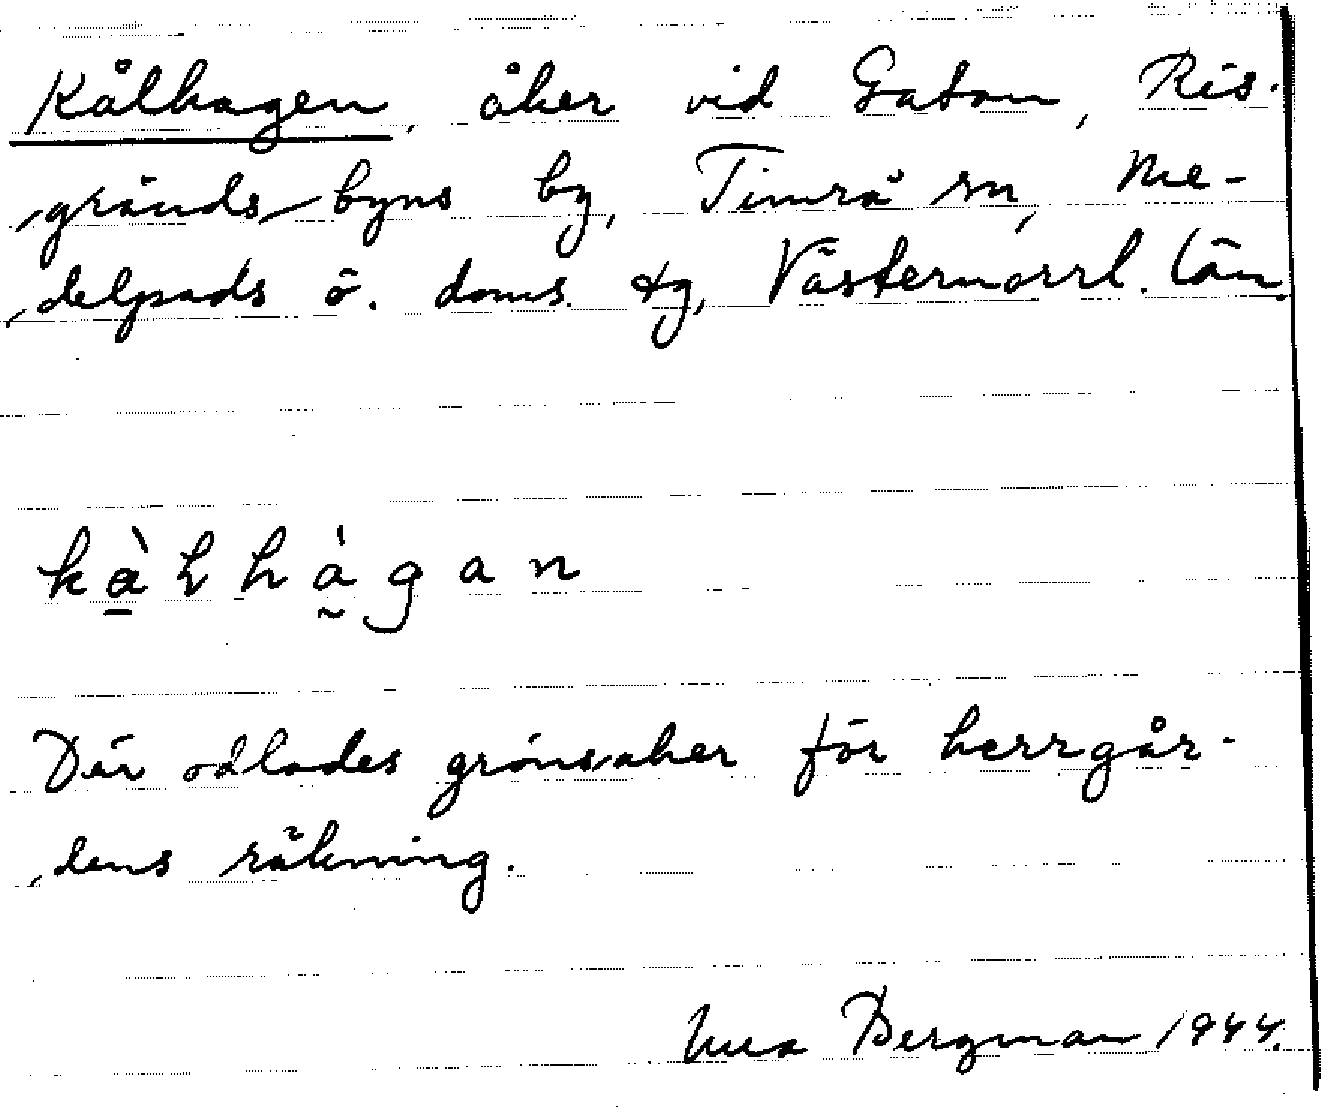 Kålhagen, åker vid Gatan, Ris-
gränds byns by, Timrå sn, Me-
delpads ö. doms. tg, Västernorrl. län.
kàlhàgan
Där odlades grönsaker för herrgår-
dens räkning.
Bergman 1944.